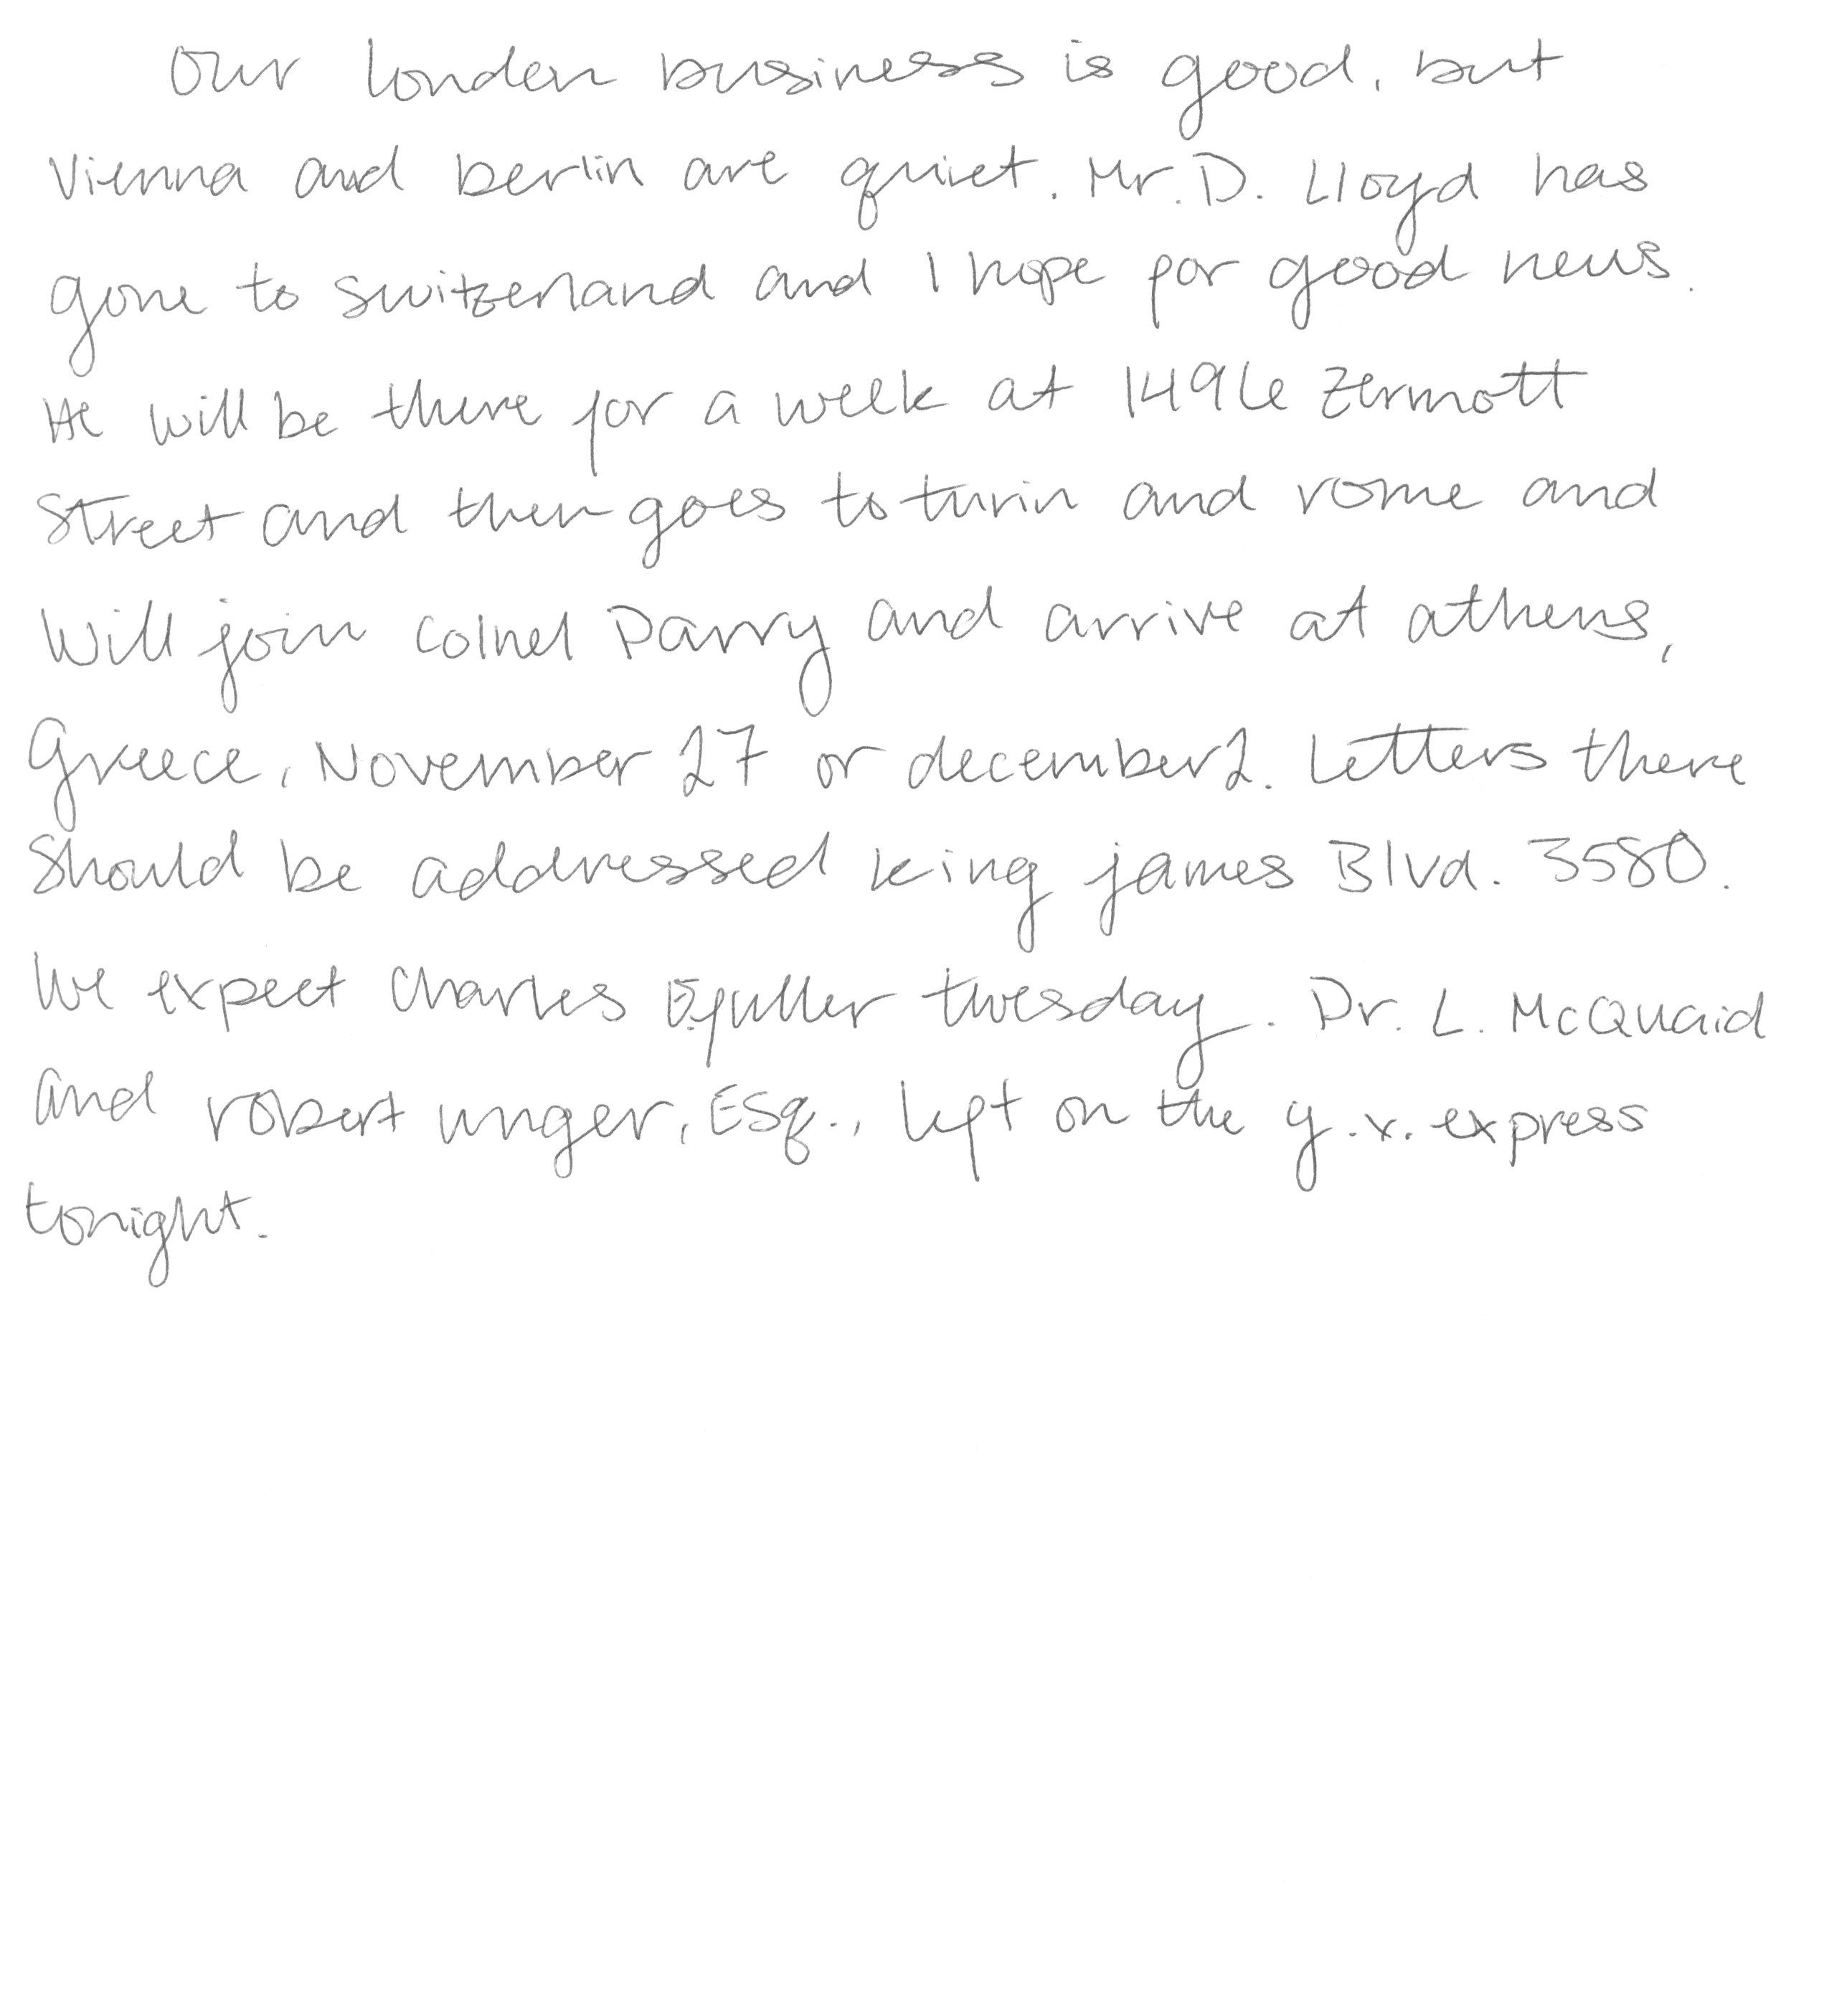 Our london business is good, but
Vienna and berlin are quiet. Mr. D. Lloyd has
gone to switzerland and I hope for good news.
He will be there for a week at 1496 Zermott
Street and then goes to turin and rome and
will join colnel Parry and arrive at athens,
Greece, November 27 or december 2. Letters there
should be addressed king james Blvd. 3580.
We expect Charles Efuller tuesday. Dr. L. McQuaid
and robert unger, Esq., left on the y.x. express
tonight.